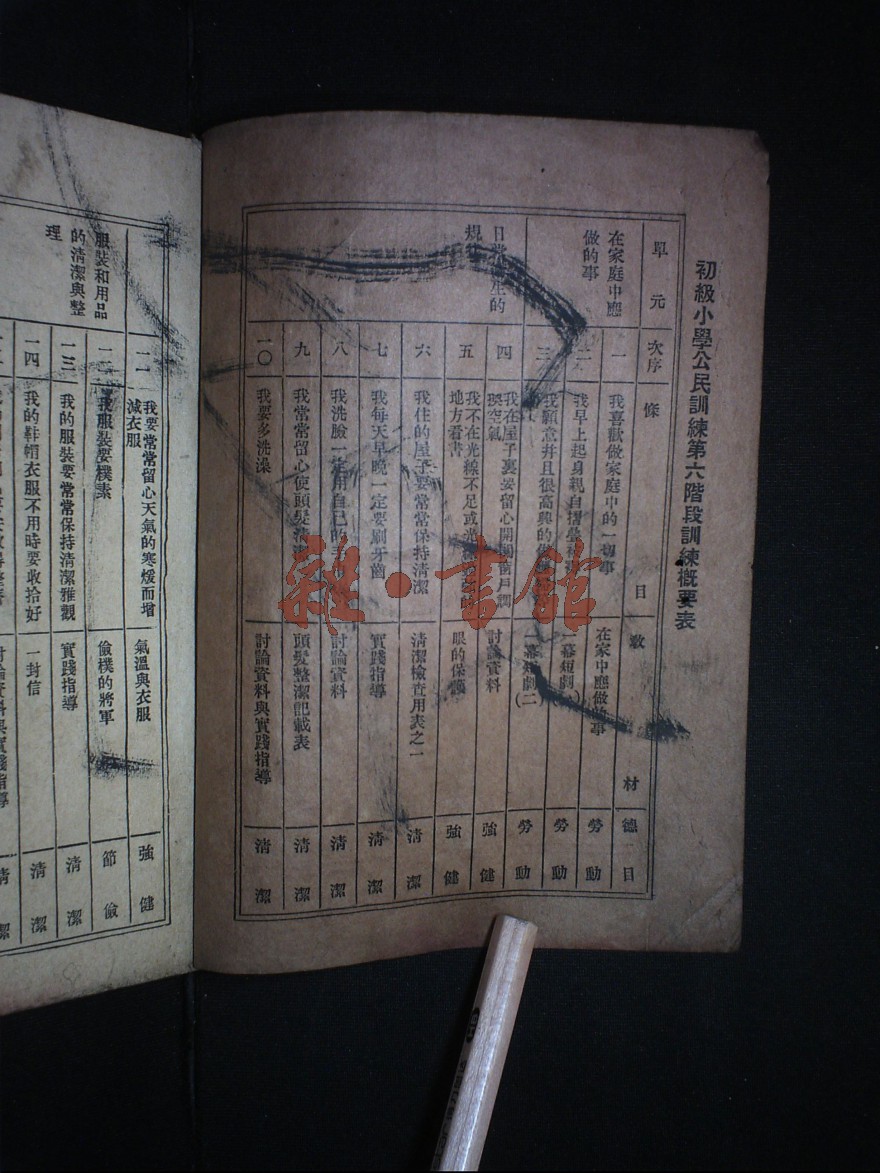 初級小學公民訓練第六階段訓練概要表
單元
次序
條目
教材
德目
在家庭中應
做的事
一
我喜歡做家庭中的一切事
在家中應做的事
勞動
二
我早上起身親自摺疊
一幕短劇(一)
勞動
三
我願意并且很高興的
一幕短劇(二)
勞動
日常 生的
規
四
我在屋子裏要留心開 窗戶調
換空氣
討論資料
強健
五
我不在光線不足或光
地方看書
眼的保護
強健
六
我住的屋子要常常保持清潔
清潔檢查用表之一
清潔
七
我每天早晚一定要刷牙齒
實踐指導
清潔
八
我洗臉一定用自己的
討論資料
清潔
九
我常常留心使頭髮清潔
頭髮整潔記載表
清潔
一〇
我要多洗澡
討論資料與實踐指導
清潔
服裝和用品
的清潔與整
理
一一
我要常常留心天氣的寒煖而增
減衣服
氣溫與衣服
強健
一二
我服裝要樸素
儉樸的將軍
節儉
一三
我的服裝要常常保持清潔雅觀
實踐指導
清潔
一四
我的鞋帽衣服不用時要收拾好
一封信
清潔
討論資料與實踐指導
清潔
雜·書館